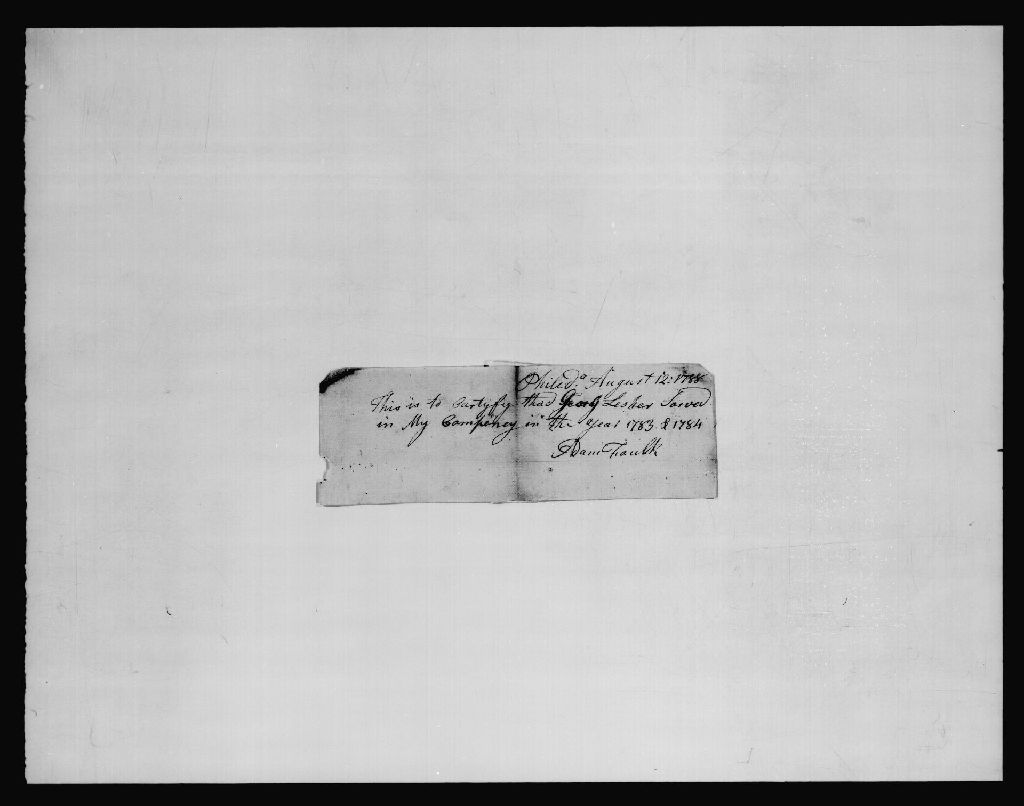 Philad.a August 12: 1788
This is to Certyfy thad Georg Lesher Sarved
in My Compeney in the Year 1783 & 1784
Adam Faulk